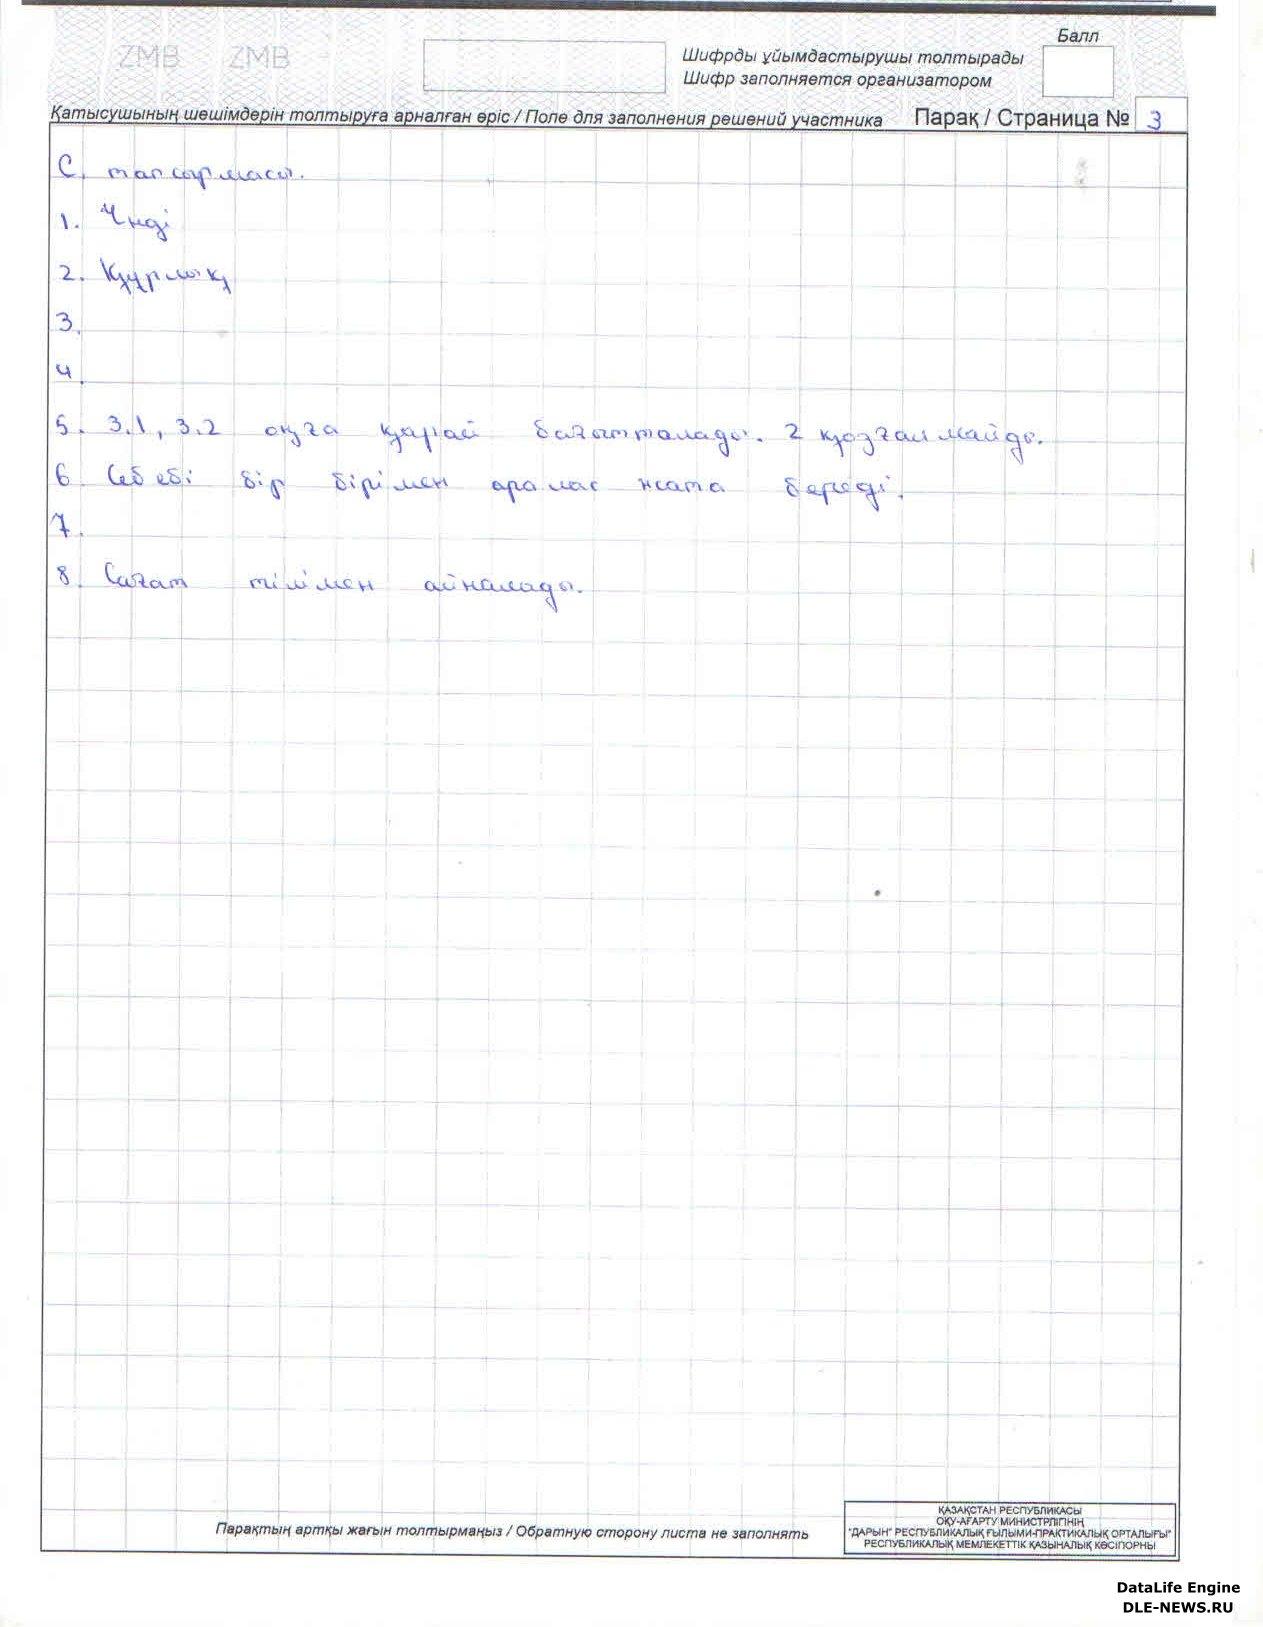 ZMB ZMB
Балл
Шифрды ұйымдастырушы толтырады
Шифр заполняется организатором
Қатысушының шешімдерін толтыруға арналған өріс / Поле для заполнения решений участника
Парақ / Страница № 3
С. тапсырмасы.
1. Үнді
2. Құрлық
3.
4.
5. 3.1, 3.2 оңға қарай бағытталады. 2 қозғалмайды.
6 Себебі бір бірімен аралас жата береді.
7.
8. Сағат тілімен айналады.
Парақтың артқы жағын толтырмаңыз / Обратную сторону листа не заполнять
ҚАЗАҚСТАН РЕСПУБЛИКАСЫ
ОҚУ-АҒАРТУ МИНИСТРЛІГІНІҢ
"ДАРЫН" РЕСПУБЛИКАЛЫҚ ҒЫЛЫМИ-ПРАКТИКАЛЫҚ ОРТАЛЫҒЫ"
РЕСПУБЛИКАЛЫҚ МЕМЛЕКЕТТІК ҚАЗЫНАЛЫҚ КӘСІПОРНЫ
DataLife Engine
DLE-NEWS.RU